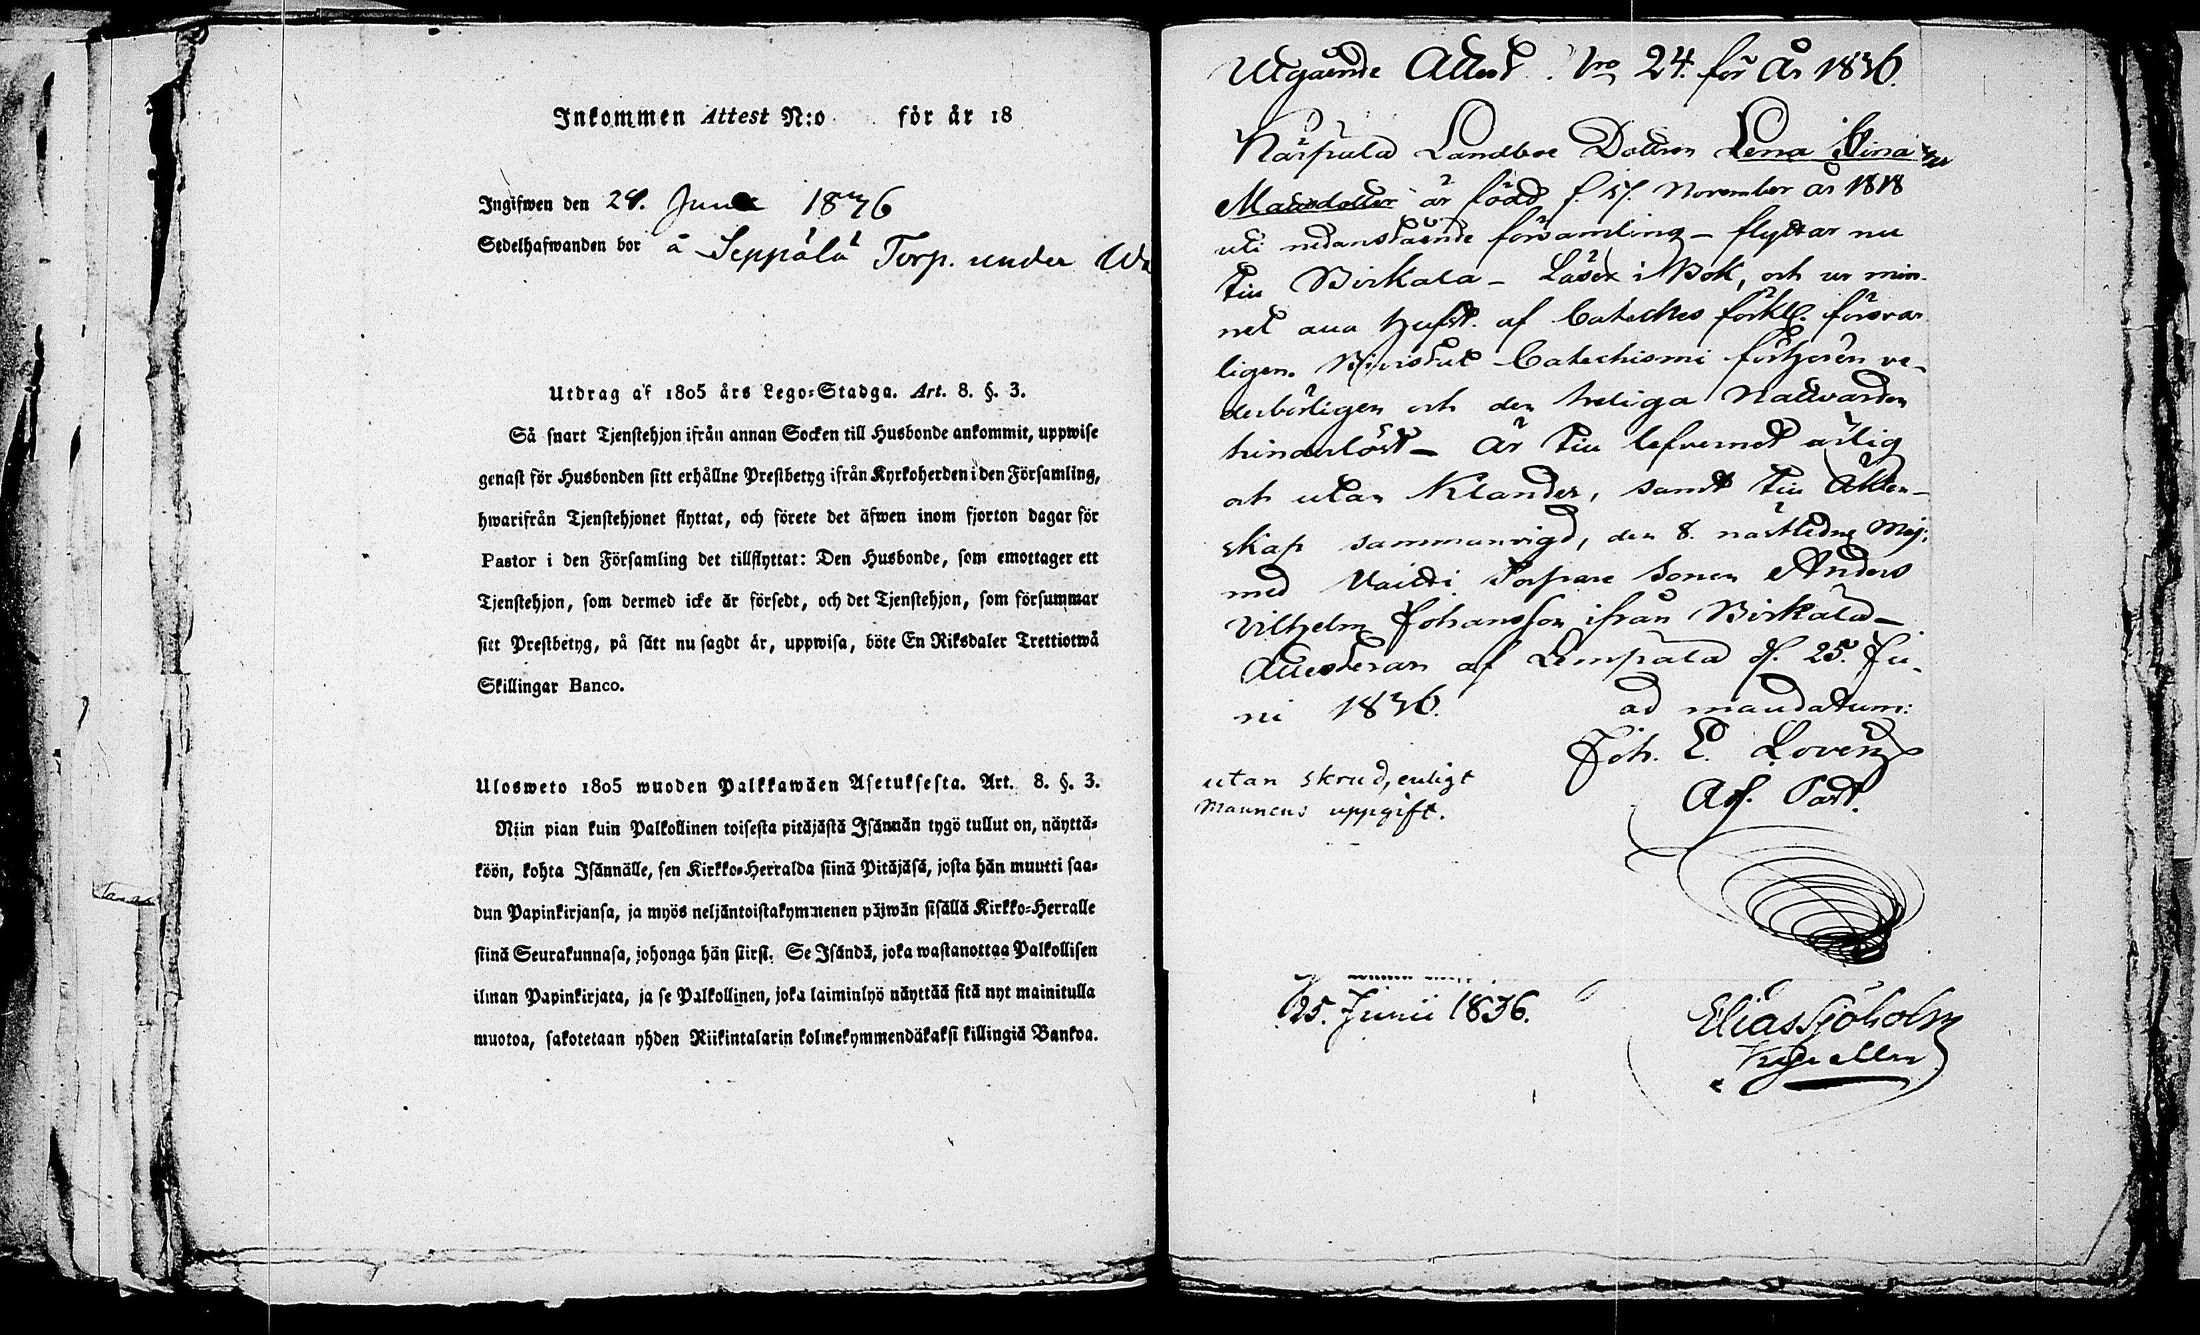 Inkommen Attest N:o för år 18
Ingifwen den 24. Juni 1836
Sedelhafwanden bor å Seppälä Torp. under
Utdrag af 1805 års Lego-Stadga. Art. 8. §. 3.
Så snart Tjenstehjon ifrån annan Socken till Husbonde ankommit, uppwise
genast för Husbonden sitt erhållne Prestbetyg ifrån Kyrkoherden i den Församling,
hwarifrån Tjenstehjonet flyttat, och förete det äfwen inom fjorton dagar för
Pastor i den Församling det tillflyttat: Den Husbonde, som emottager ett
Tjenstehjon, som dermed icke är försedt, och det Tjenstehjon, som försummar
sitt Prestbetyg, på sätt nu sagdt är, uppwisa, böte En Riksdaler Trettiotwå
Skillingar Banco.
Ulosweto 1805 wuoden Palkkawäen Asetuksesta. Art. 8. §. 3.
Niin pian kuin Palkollinen toisesta pitäjästä Isännän tygö tullut on, näyttä-
köön, kohta Isännälle, sen Kirkko-Herralda siinä Pitäjäsä, josta hän muutti saa-
dun Papinkirjansa, ja myös neljäntoistakymmenen päiwän sisällä Kirkko-Herralle
siinä Seurakunnasa, johonga hän siirsi. Se Isändä, joka wastanottaa Palkollisen
ilman Papinkirjata, ja se Palkollinen, joka laiminlyö näyttää sitä nyt mainitulla
muotoa, sakotetaan yhden Riikintalarin kolmekymmendäkaksi killingiä Bankoa.
Utgående Attest. Nro 24. för år 1836.
Landboe Dottren Lena Stina
Matsdotter är född d. 17. November år 1818
uti nedanstående församling – flyttar nu
till Birkala – Läser i Bok, och ur min-
net alla hufst. af Cateches förkl. försvar-
ligen. Bivistat Catechismi förhören ve-
derbörligen och den heliga Nattvarden
hinderlöst – Är till lefvernet ärlig
och utan Klander, samt till Äkten-
skap sammanvigd, den 8. nästledne Maj:
med Torpare Sonen Anders
Vilhelm Johansson ifrån Birkala –
Attesteras af Lempälä d. 25. Ju-
ni 1836. ad mandatum:
Joh. E.
Past.
utan skrud, enligt
Mannens uppgift.
25. Junii 1836. Elias Sjöholm